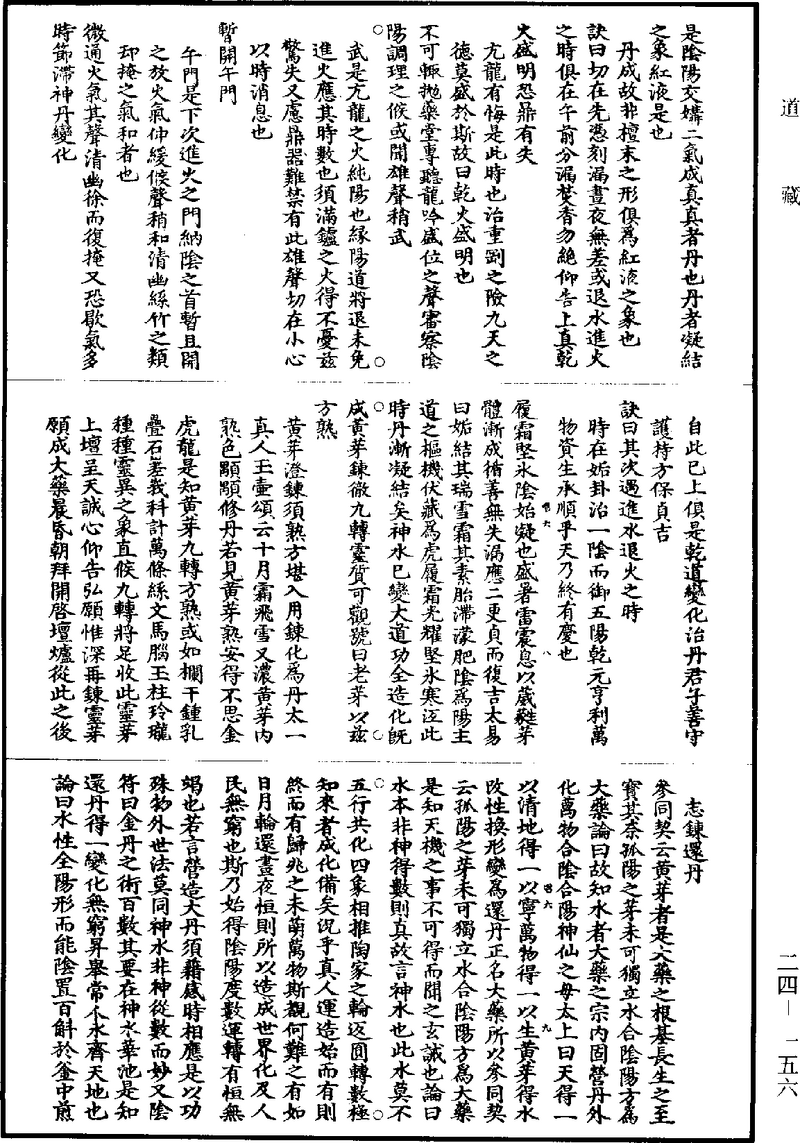 道藏
是陰陽交媾二氣成真真者丹也丹者凝結
之象紅液是也
丹成故非檀末之形俱爲紅液之象也
訣曰切在先慿刻漏晝夜無差或退水進火
之時俱在午前分漏焚香勿絶仰告上真乾
火盛明恐鼎有失
亢龍有悔是此時也治重剛之險九天之
德莫盛於斯故曰乾火盛明也
不可輒抛藥堂專聽龍吟盛位之聲審察陰
陽調理之候或聞雄聲稍武
武是亢龍之火純陽也縁陽道將退未免
進火應其時數也須滿鑪之火得不憂兹
驚失又慮鼎器難禁有此雄聲切在小心
以時消息也
暫開午門
午門是下次進火之門納陰之首暫且開
之放火氣仲緩候聲稍和清幽絲竹之類
却掩之氣和者也
微通火氣其聲清幽徐而復掩又恐歇氣多
時節滯神丹變化
自此已上俱是乾道變化治丹君子善守
護持方保貞吉
訣曰其次遇進水退火之時
時在姤卦治一陰而御五陽乾元亨利萬
物資生承順乎天乃終有慶也
履霜堅氷陰始凝也盛暑雷震息以葳蕤芽
體漸成循善無失漏應二更貞而復吉太易
曰姤結其瑞雪霜其素胎滯濛肥陰爲陽主
道之樞機伏藏爲虎履霜光耀堅氷寒沍此
時丹漸凝結矣神水已變大道功全造化既
成黄芽鍊徹九轉靈質可觀號曰老芽以兹
方熟
黄芽澄鍊須熟方堪入用鍊化爲丹太一
真人王壷頌云十月霜飛雪又濃黄芽内
熟色顒顒修丹若見黄芽熟安得不思金
虎龍是知黄芽九轉方熟或如欄干鍾乳
疊石峩峩科計萬條絲文馬腦玉柱玲瓏
種種靈異之象直候九轉將足收此靈芽
上壇呈天誠心仰告弘願惟深再鍊靈芽
願成大藥晨昏朝拜開啓壇爐從此之後
志鍊還丹
參同契云黄芽者是大藥之根基長生之至
寳其奈孤陽之芽未可獨立水合陰陽方爲
大藥論曰故知水者大藥之宗内固營丹外
化萬物合陰合陽神仙之母太上曰天得一
以清地得一以寧萬物得一以生黄芽得水
改性換形變爲還丹正名大藥所以參同契
云孤陽之芽未可獨立水合陰陽方爲大藥
是知天機之事不可得而聞之玄誠也論曰
水本非神得數則真故言神水也此水莫不
五行共化四象相推陶家之輪迈圓轉數極
知來者成化備矣況乎真人運造始而有則
終而有歸兆之未萌萬物斯覩何難之有如
日月輪還晝夜恒則所以造成世界化及人
民無窮也斯乃始得陰陽度數運轉有恒無
竭也若言營造大丹須藉感時相應是以功
殊物外世法莫同神水非神從數而妙又陰
符曰金丹之術百數其要在神水華池是知
還丹得一變化無窮昇舉常个永齊天地也
論曰水性全陽形而能陰置百斛於釜中煎
二四－一五六